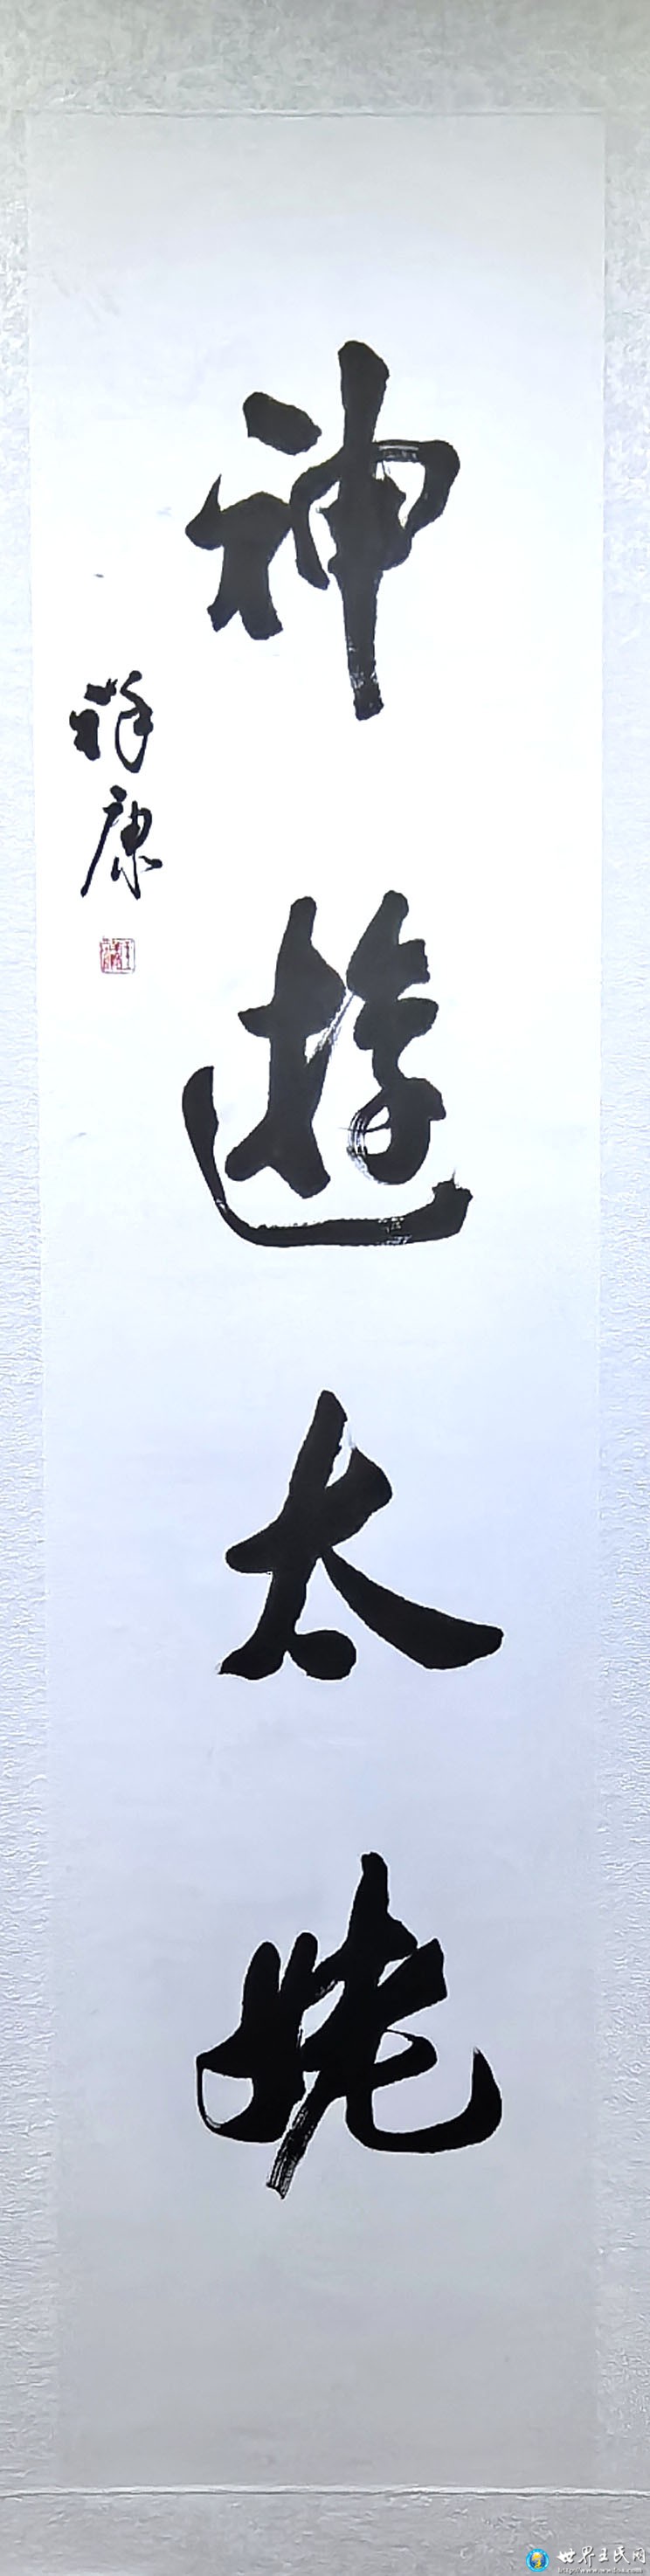 神遊太姥
祥康
世界王氏网